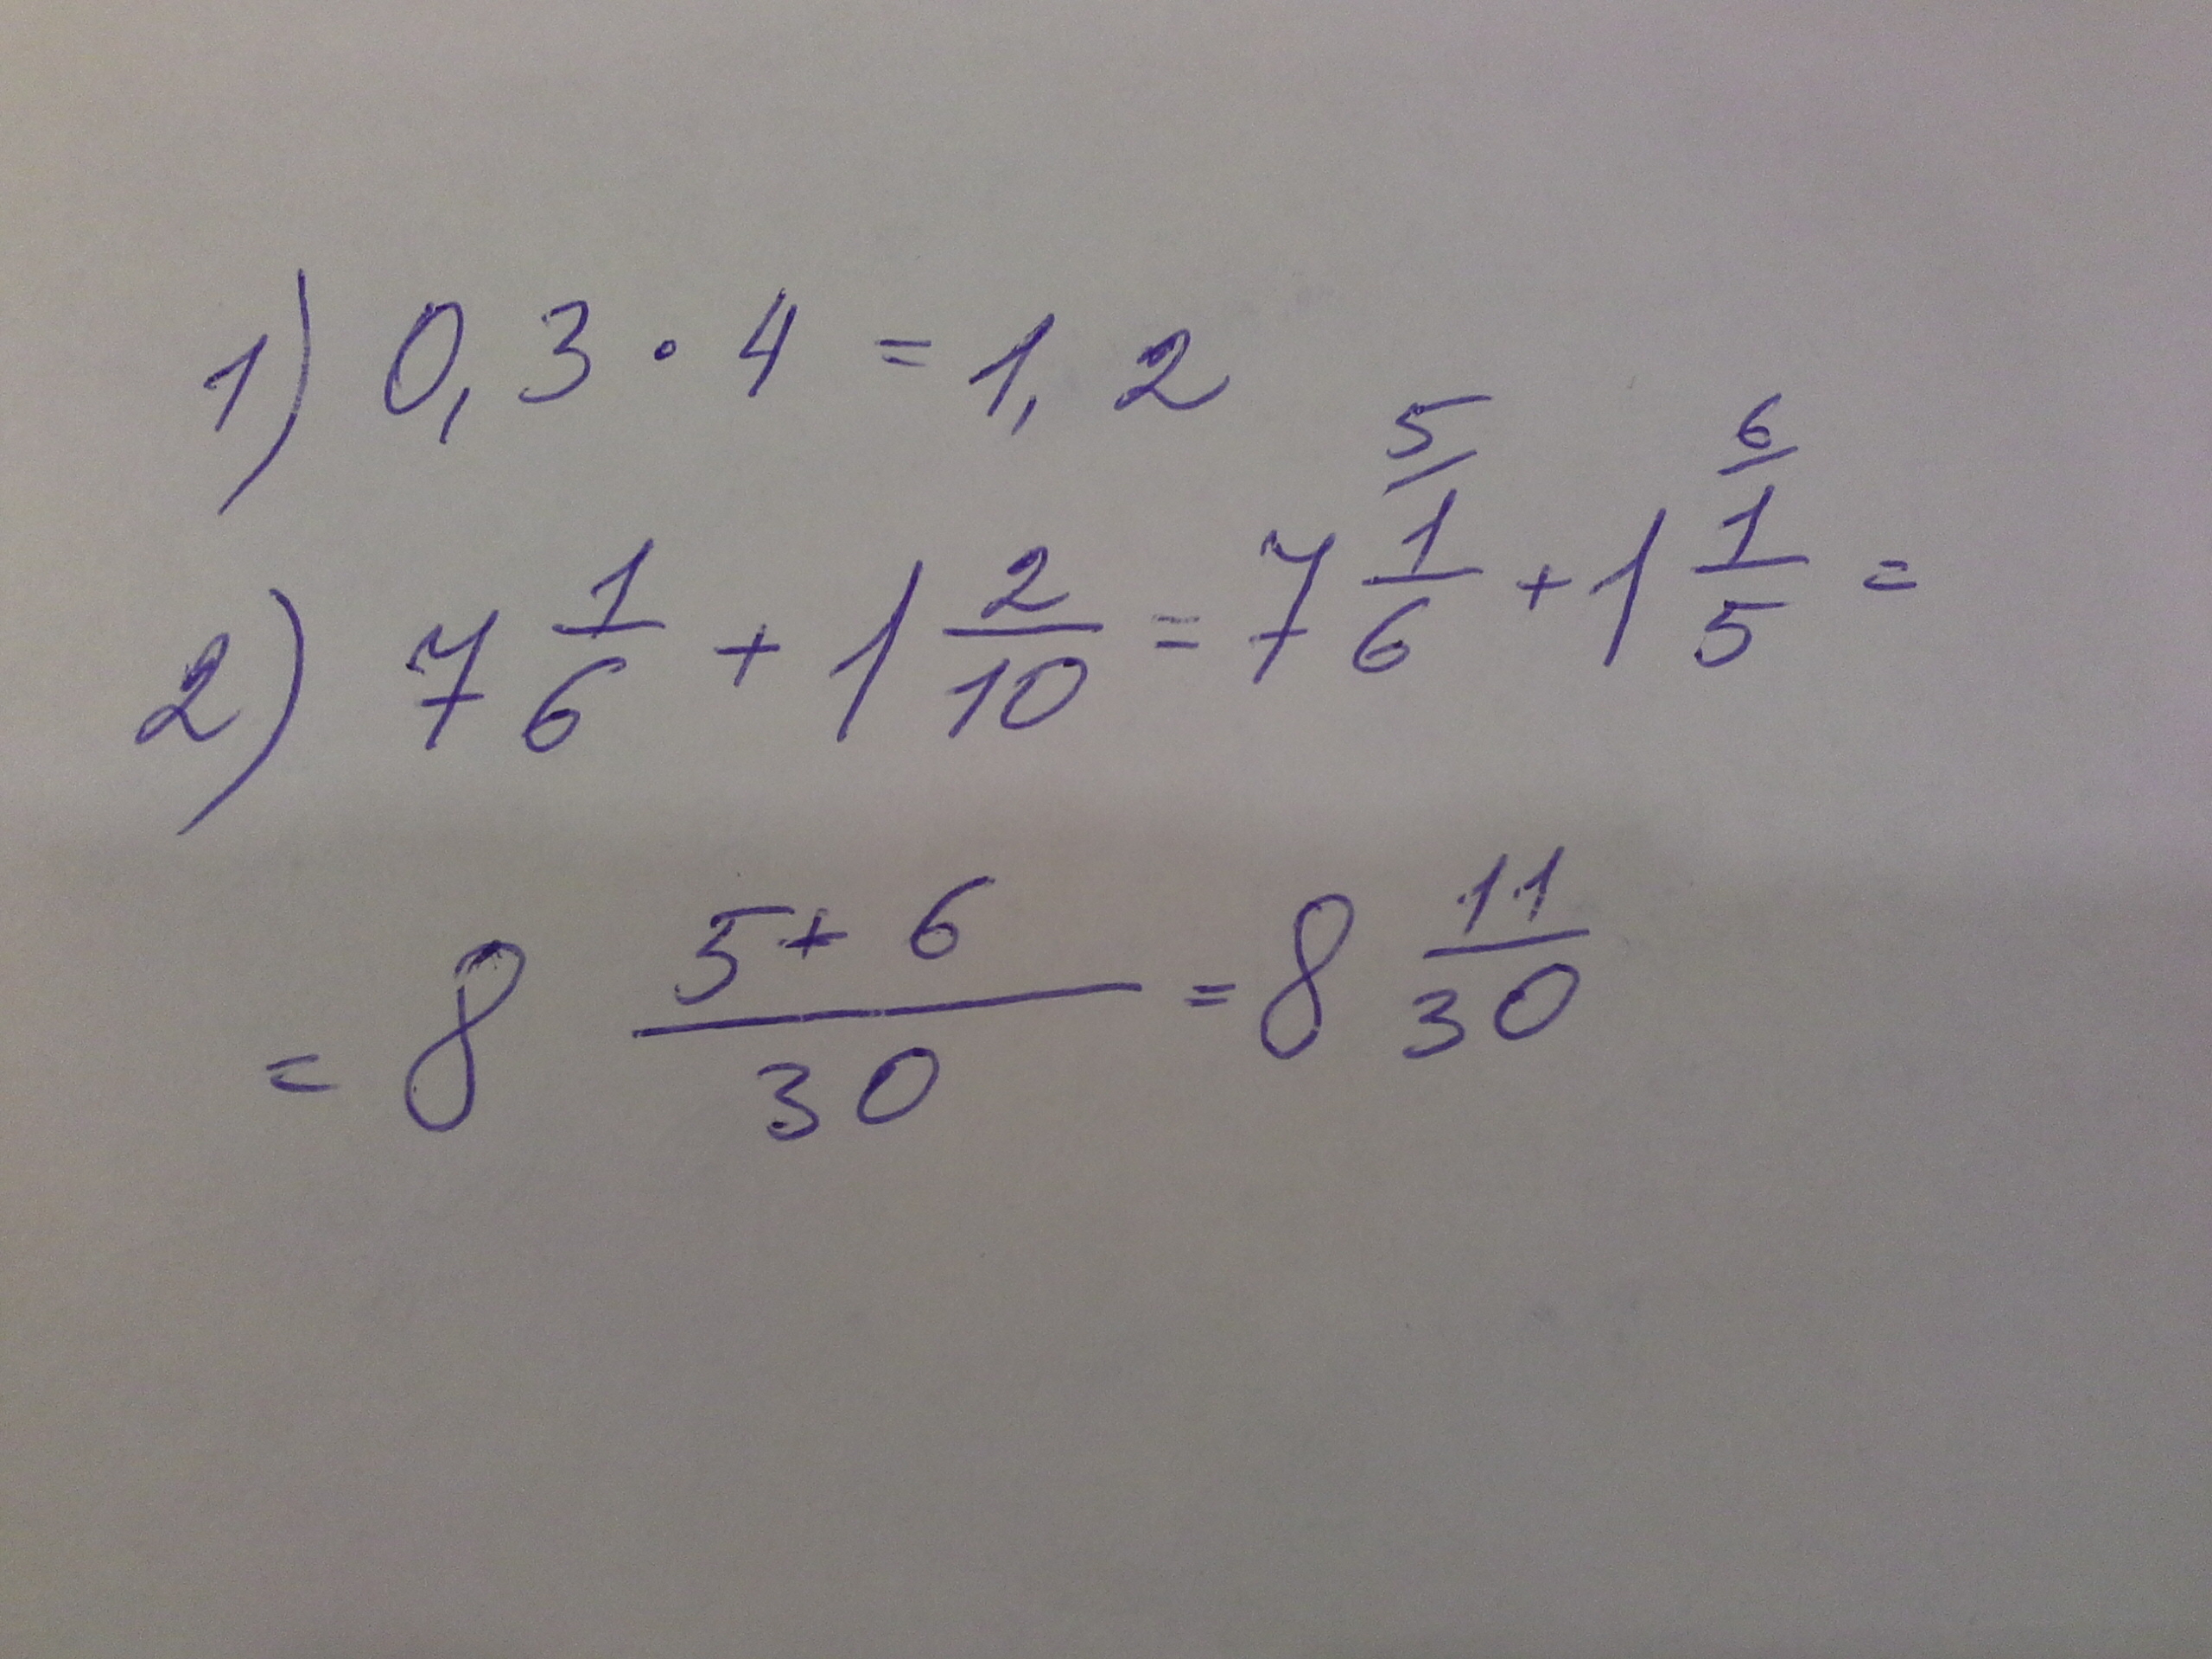 1) 0,3 · 4 = 1,2
2) 7 1/6 + 1 2/10 = 7 5/ 1/6 + 1 6/ 1/5 =
= 8 (5+6)/30 = 8 11/30